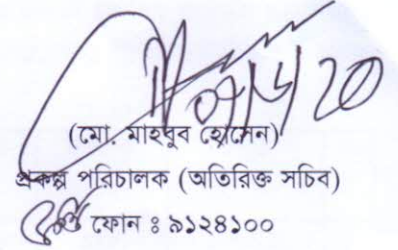 (মো. মাহবুব হোসেন)
প্রকল্প পরিচালক (অতিরিক্ত সচিব)
ফোন : ৯১২৪১০০